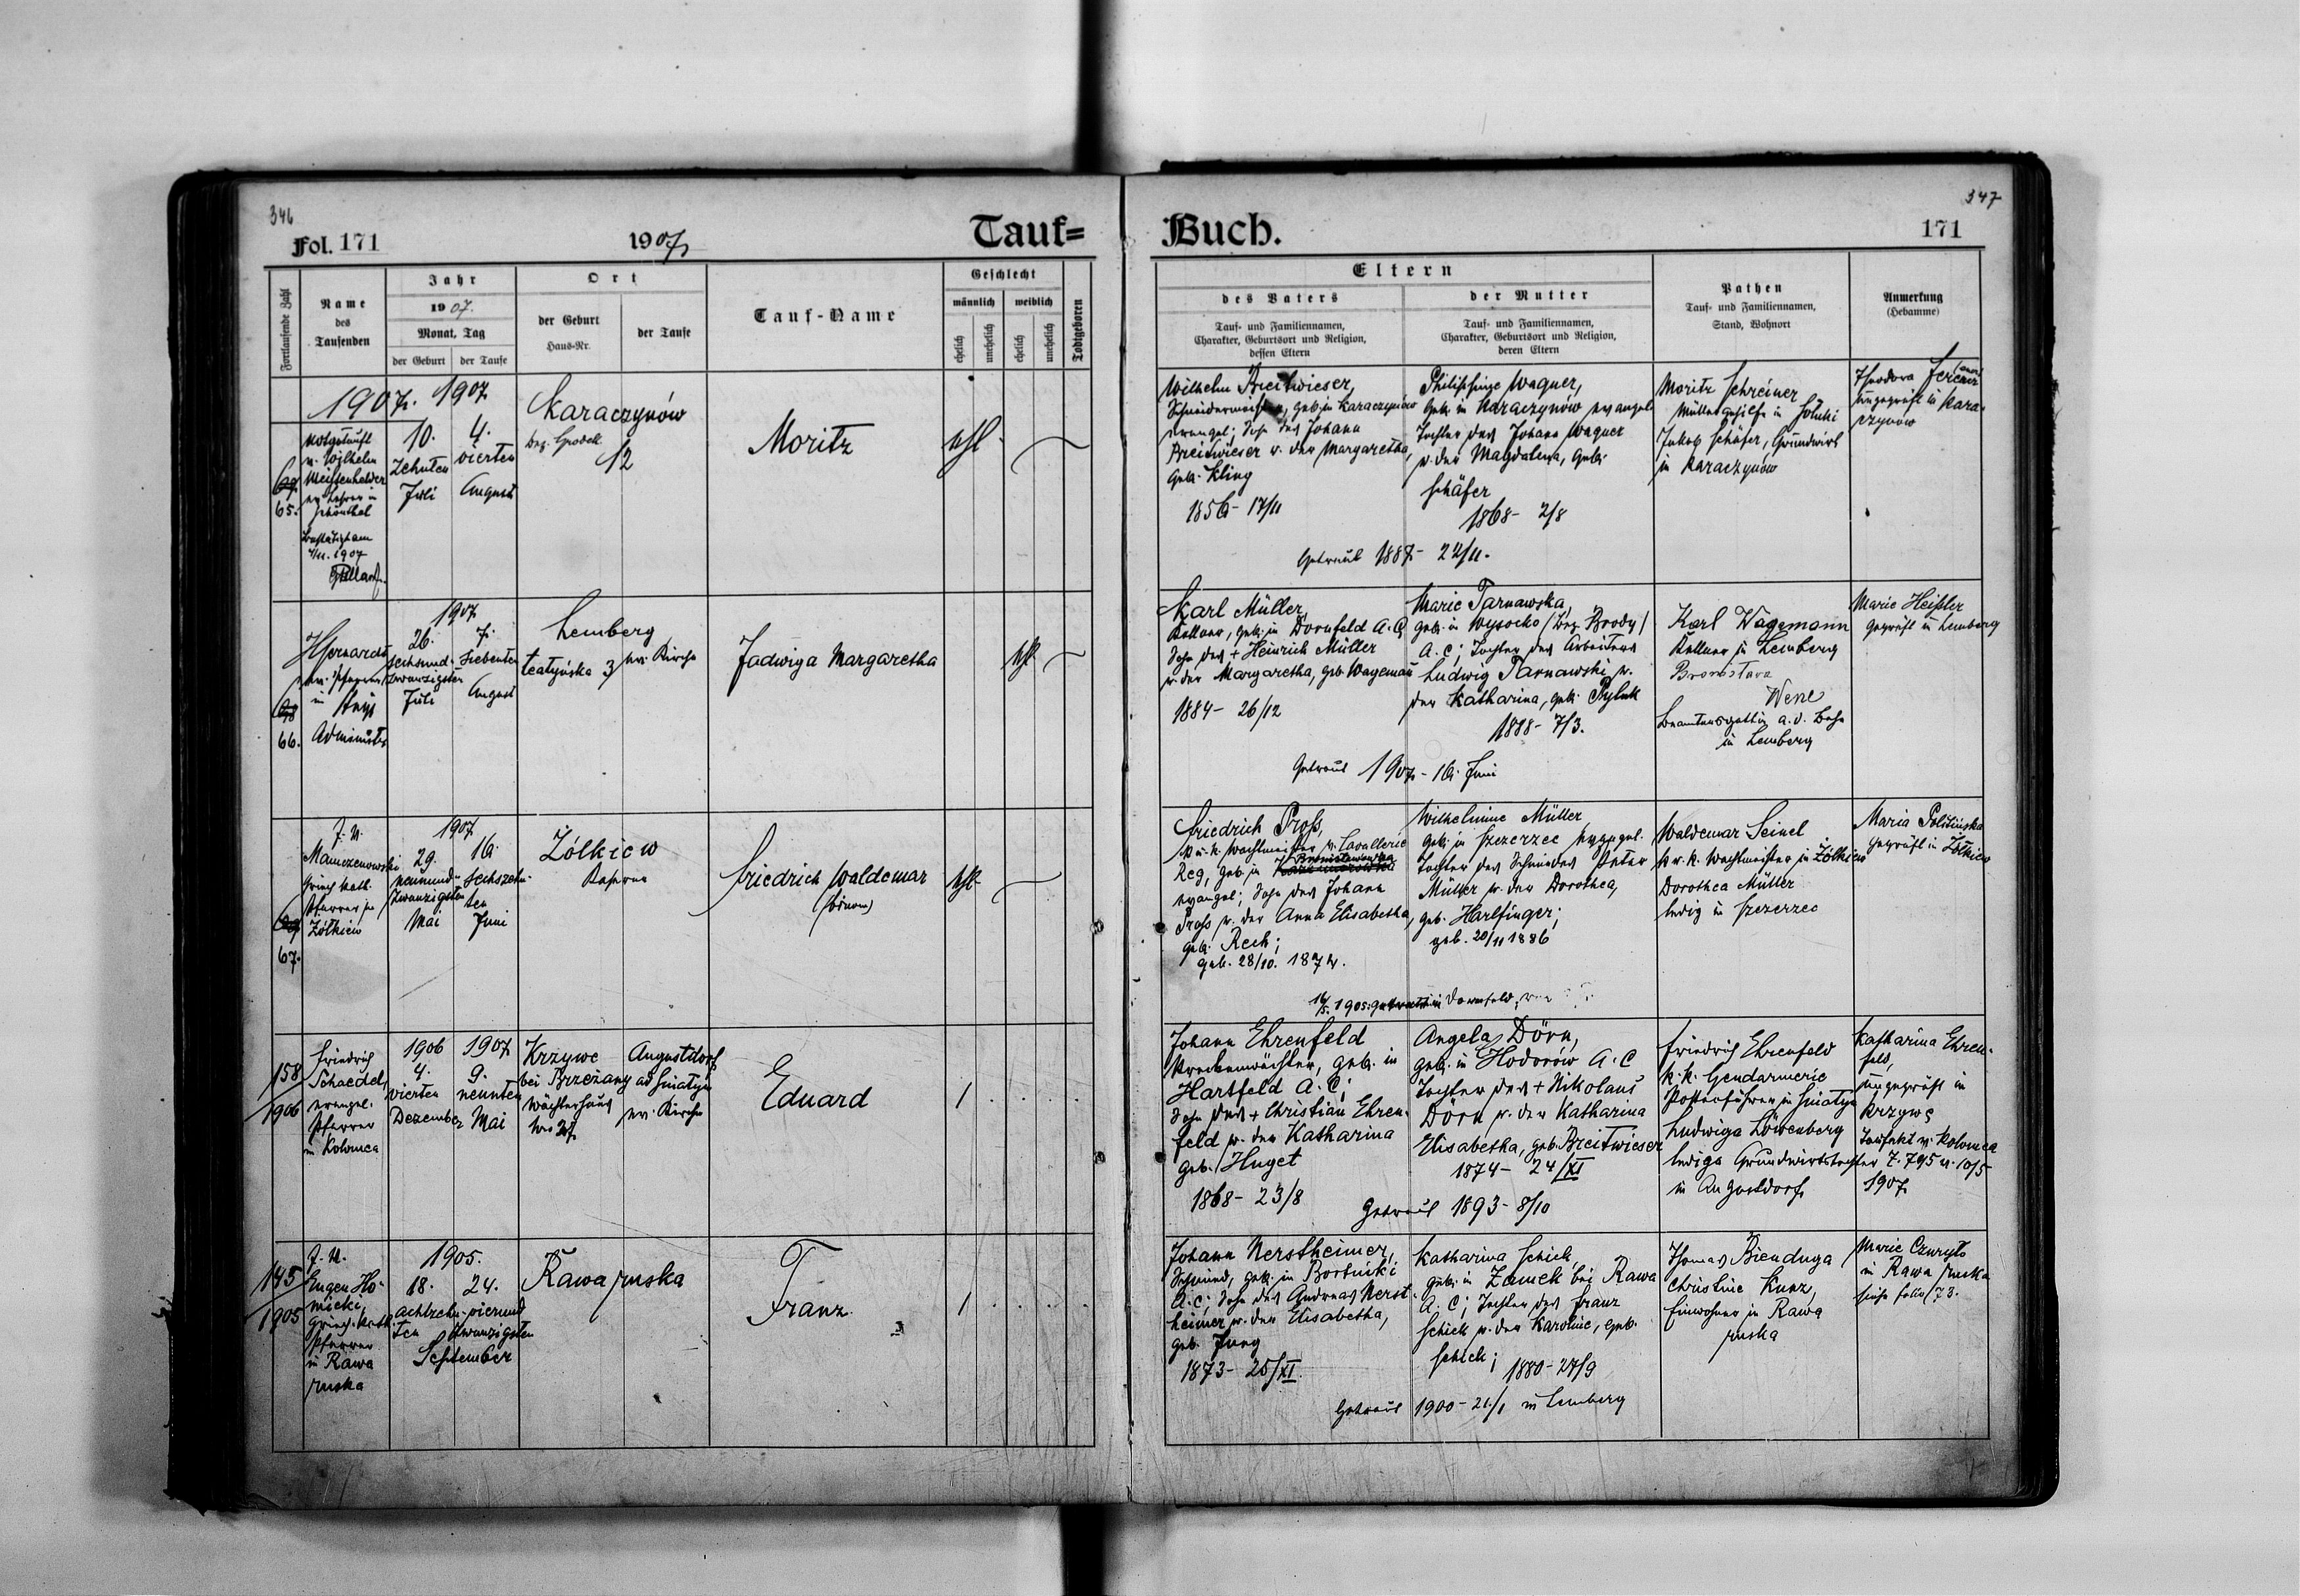 346
Fol. 171
1907
Tauf=
Fortlaufende Zahl
Name
des
Taufenden
Jahr
1907.
Monat, Tag
der Geburt
der Taufe
Ort
der Geburt
Haus-Nr.
der Taufe
Tauf-Name
Geschlecht
männlich
weiblich
ehelich
unehelich
ehelich
unehelich
Todtgeboren
1907. 1907
65.
Notgetauft
v. Wilhelm
ev. Lehrer in
Schönthal
1907
10.
Zehnten
Juli
4.
vierten
August
Karaczynów
Bez. Grodek
12
Moritz
ehl.
66.
ev. Pfarrer
in Stryj
Administr.
1907
26.
sechsund-
zwanzigsten
Juli
7.
Siebenten
August
Lemberg
3
ev. Kirche
Jadwiga Margaretha
ehl.
67.
J. U.
griech. kath.
Pfarrer in
Żółkiew
1907
29.
neunund-
zwanzigsten
Mai
16.
Sechszehn-
ten
Juni
Żółkiew
Kaserne
Friedrich Waldemar
ehl.
158
1906
Friedrich
Schaedel,
evangel.
Pfarrer
in Kolomea
1906
4.
vierten
Dezember
1907
9.
neunten
Mai
Krzywe
bei Brzeżany
Wächterhaus
Augustdorf
ad Sniatyn
ev. Kirche
Eduard
1
145
1905
J. U.
Eugen Ho-
nicki,
griech. kath.
Pfarrer
in Rawa
ruska
1905.
18.
achtzehn-
ten
24.
vierund
zwanzigsten
September
Rawa ruska
Franz
1
347
Buch.
171
Eltern
des Vaters
Tauf- und Familiennamen,
Charakter, Geburtsort und Religion,
dessen Eltern
der Mutter
Tauf- und Familiennamen,
Charakter, Geburtsort und Religion,
deren Eltern
Pathen
Tauf- und Familiennamen,
Stand, Wohnort
Anmerkung
(Hebamme)
Wilhelm Breitwieser,
Schneidermeister, geb. in Karaczynów
evangel; Sohn des Johann
Breitwieser u. der Margaretha,
geb. Kling
1856 - 17/11
Philippine Wagner,
geb. in Karaczynów evangel
Tochter des Johann Wagner
u. der Magdalena, geb.
Schäfer
1868 - 2/8
Getraut 1887 - 22/11.
Moritz Schreiner
Müllergehilfe in
Jakob Schäfer, Grundwirt
in Karaczynów
Theodora
ungeprüft in Kara-
czynów
Karl Müller,
Kellner, geb. in Dornfeld A. C,
Sohn des + Heinrich Müller
u. der Margaretha, geb. Wageman
1884 - 26/12
Marie Tarnawska,
geb. in Wysocko / Bez. Brody /
A. C; Tochter des Arbeiters
Ludwig Tarnawski u.
der Katharina, geb.
1888 - 7/3.
Getraut 1907 - 16. Juni
Karl Wagemann
Kellner in Lemberg
Bronislava
Beamtensgattin a. d. Bahn
in Lemberg
Marie Heisler
geprüft in Lemberg
Friedrich Pross,
k. u. k. Wachtmeister v. Cavallerie
Reg, geb. in
evangel; Sohn des Johann
Pross u. der Anna Elisabetha,
geb. Rech;
geb. 28/10. 1874.
Wilhelmine Müller
geb. in Szczerzec evangel.
Tochter des Schmiedes Peter
Müller u. der Dorothea,
geb. Harlfinger;
geb. 20/11 1886
1905. getraut in Dornfeld,
Waldemar Seinel
k. u. k. Wachtmeister in Żółkiew
Dorothea Müller
ledig in Szczerzec
Maria
geprüft in Żółkiew
Johann Ehrenfeld
Streckenwächter, geb. in
Hartfeld A. C;
Sohn des + Christian Ehren-
feld u. der Katharina
geb. Huget
1868 - 23/8
Angela Dörn,
geb. in Hodorów A. C
Tochter des + Nikolaus
Dörn u. der Katharina
Elisabetha, geb. Breitwieser
1874 - 24/XI
Getraut 1893 - 8/10
Friedrich Ehrenfeld
k. k. Gendarmerie
Postenführer in Sniatyn
Ludwiga Löwenberg
ledige Grundwirtstochter
in Augustdorf
Katharina Ehren-
feld,
ungeprüft in
Krzywe
v. Kolomea
Z. 795 v. 10/5
1907
Johann Nerstheimer,
Schmied, geb. in Bortniki
A. C; Sohn des Andreas Nerst-
heimer u. der Elisabetha,
geb. Jung
1873 - 25/XI.
Katharina Schick,
geb. in Zamek bei Rawa
A. C; Tochter des Franz
Schick u. der Karoline, geb.
Schick; 1880 - 27/9
Getraut 1900 - 21/1 in Lemberg
Thomas Bienduga
Christine Kunz,
Einwohner in Rawa
ruska
Marie Czuryło
in Rawa ruska
siehe folio 73.